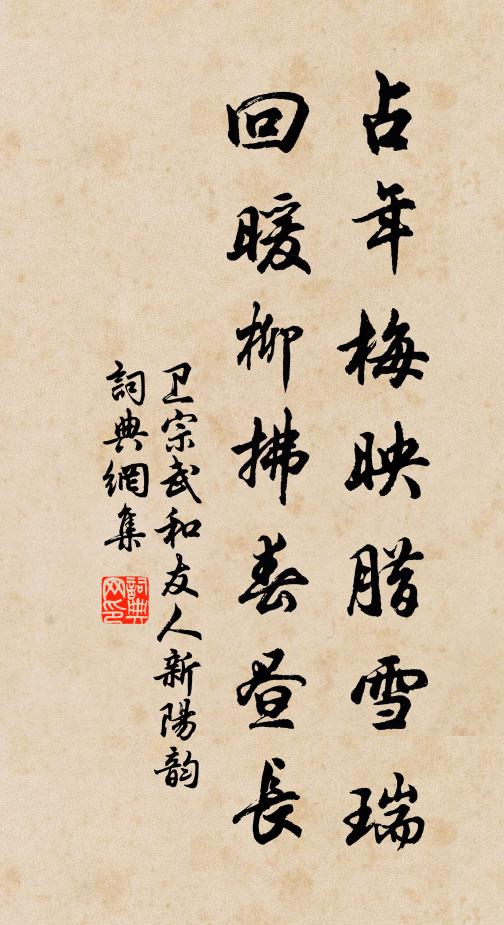 占年梅映腊雪瑞
回暖柳拂春昼長
卫宗武和友人新陽韵
詞典網集
詞典网印